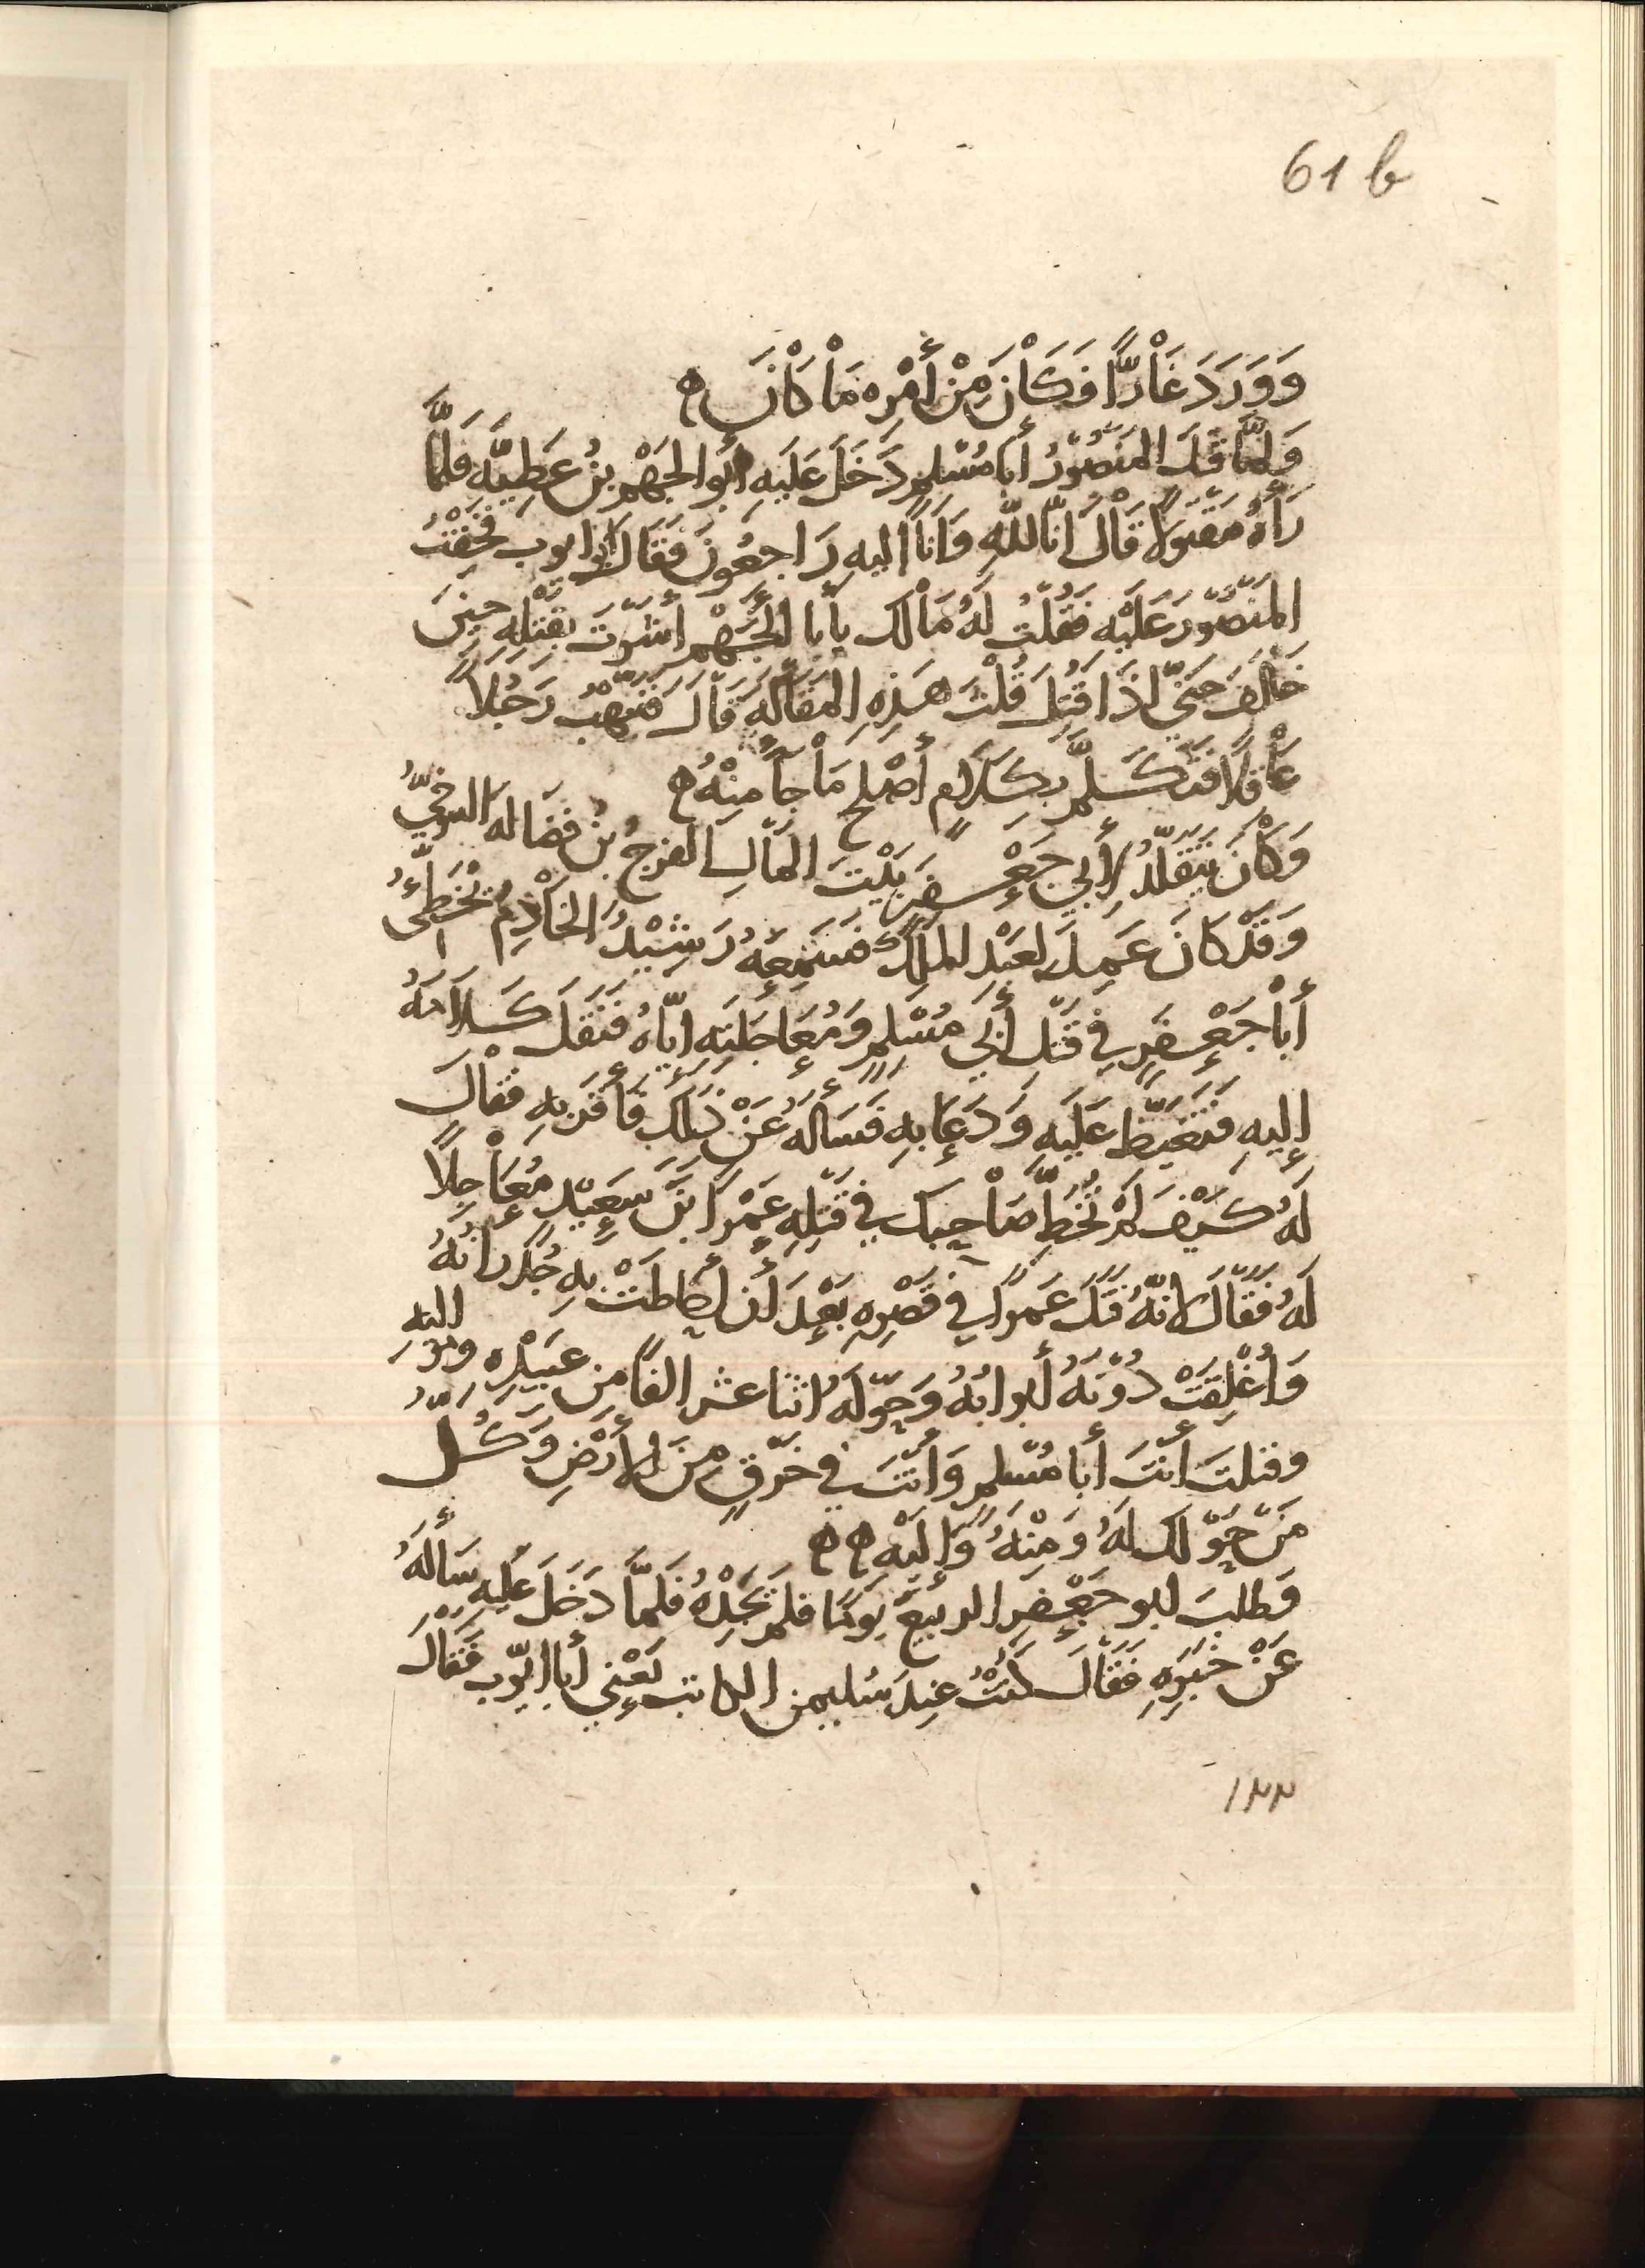 61 b
وَوَرَدَ غَاْرًّا فَكَاْنَ مِنْ أَمْرِهِ مَاْ كَاْنَ ۾
وَلمَّا قَتَلَ المَنصُوْرُ أَبا مُسْلمٍ دَخَلَ عَلَيهِ أبُو الجَهْمِ بنُ عَطِيَّه فَلمَّا
رَأهُ مَقتُولاً قَاْلَ انّا للهِ وَانَّا اليهِ رَاجعُونَ فَقَالَ ابو ايوب فخِفْتُ
المَنصُوْرَ عَلَيْهِ فَقُلْتُ لَهُ مَاْلك يأبا الجَهْمِ أَشَرْتَ بقَتْلِهِ حِينَ
خَالَفَ حَتّى اذَا قُتِلَ قُلْتَ هَذِهِ المَقَالَهَ قَاْلَ فَنَبَّهْتُ رَجُلاً
عَاْقلاً فتَكَلَّمَ بِكَلَامٍ أصْلحَ مَاْ جَاءَ مِنْهُ ۾
وَكَاْنَ يَتَقَلَّدُ لِأَبِي جَعْفَرٍ بَيْتَ المَاْلِ الفرجُ بْنُ فضَاله التنوخيُّ
وَقَدْ كَانَ عَمِلَ لعَبْدِ الملكِ فَسَمِعَهُ رَشِيْدُ الخَاْدِمُ يُخَطِّئُ
أَبَاْ جَعْفَرٍ فِي قَتْلِ أَبِي مُسْلِمٍ وَمُعَاجَلَتِهِ ايّاهُ فنَقَلَ كَلاَمَهُ
إليهِ فَتَغَيَّظ عَلَيهِ وَدَعَا بهِ فَسَألَهُ عَنْ ذَلِكَ فَأَقَرَّ بِهِ فقَالَ
لَهُ كَيْفَ لَمْ تُخَطِّ صَاْحِبَك فِي قَتْلِهِ عَمْرَا بْنَ سَعِيْدٍ مُعَاْجِلاً
لَهُ فقَالَ لانَّهُ قَتَلَ عَمرًا فِي قَصْرِهِ بَعْدَ أَن أحَاطَتْ بِهِ جُدْرَانُهُ
وَأُغْلِقَتْ دُوْنَهُ أبوابُهُ وَحَوْلَهُ اثنا عشر الفاً من عَبِيْدِهِ ومَوَاليهِ
وقتلتَ أنْتَ أَبا مُسْلمٍ وَأَنْتَ فِي خَرْقٍ مِنَ الأَرْضِ وَكُلُّ
مَنْ حَوْلَك لهُ وَمِنْهُ وَإِلَيْهِ ۾ ۾
وَطلبَ ابو جَعْفَرٍ الربيعَ يَومًا فلم يَجِدْهُ فَلَمَّا دَخَلَ عَليهِ سَألَهُ
عَنْ خَبَرِهِ فَقَاْلَ كُنْتُ عِندَ سُليمن الكاتب يَعْنِي أبا ايّوب فَقَالَ
١٢٢